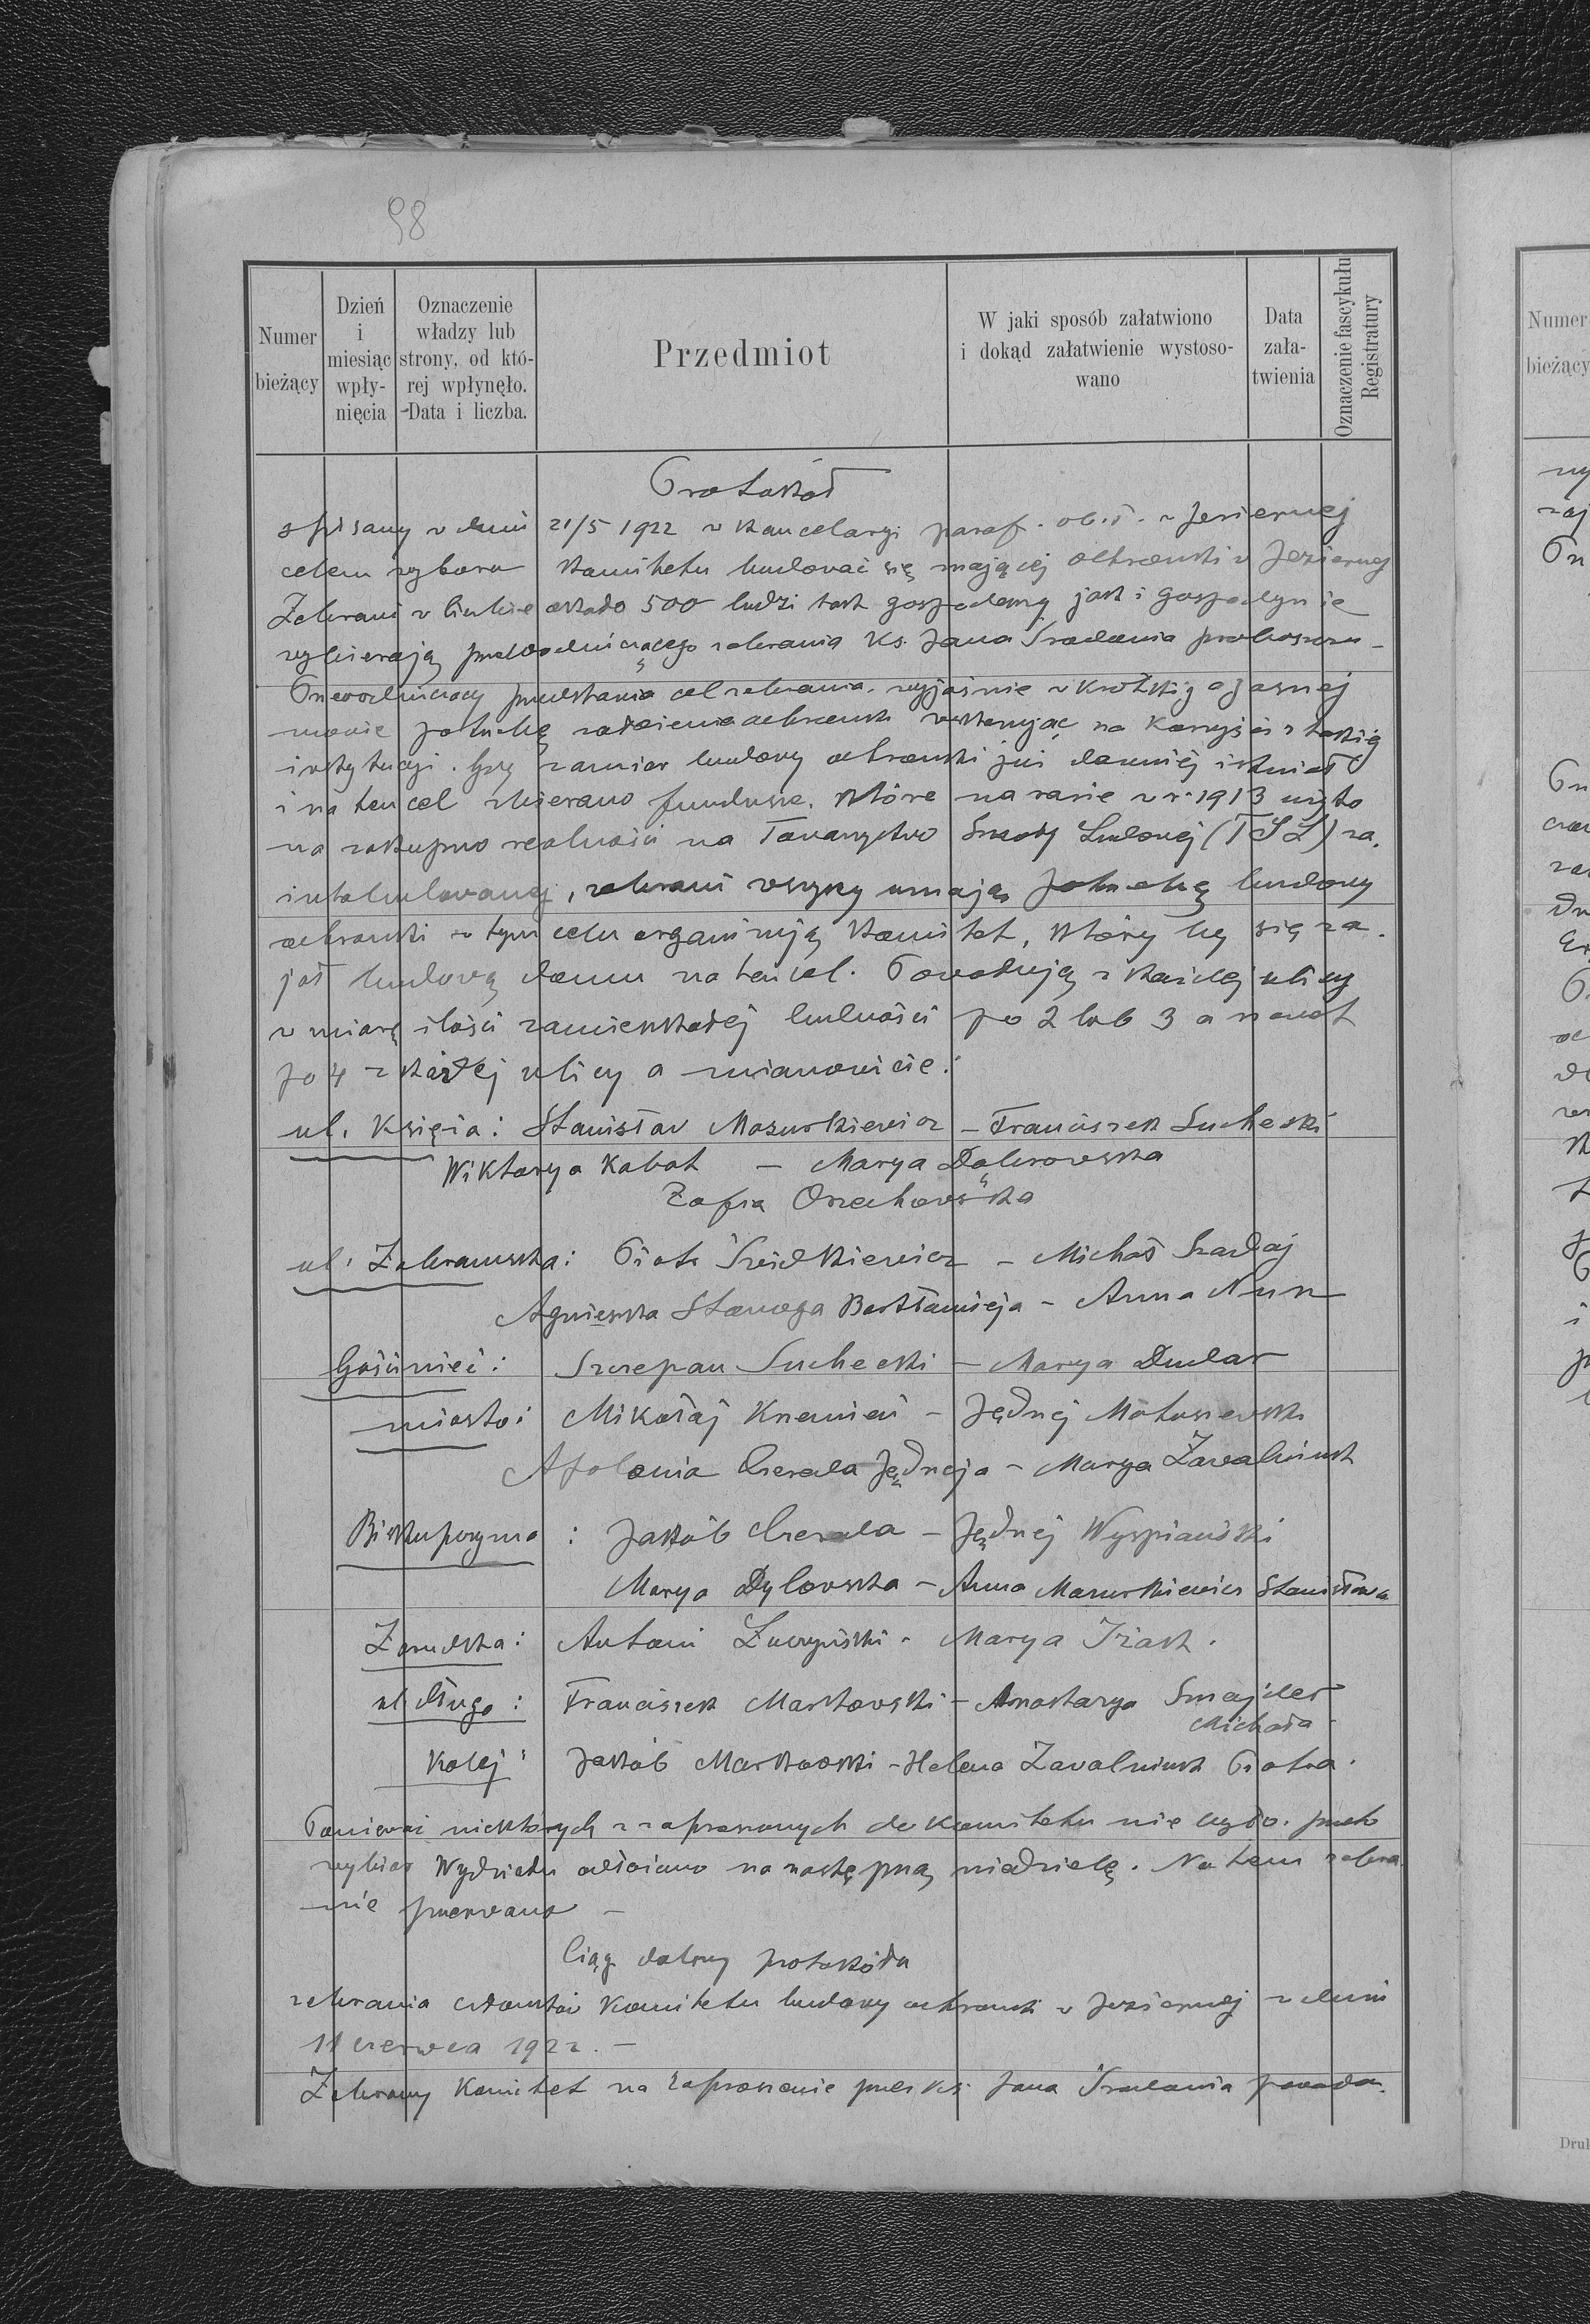 98
Numer
bieżący
Dzień
i
miesiąc
wpły-
nięcia
Oznaczenie
władzy lub
strony, od któ-
rej wpłynęło.
Data i liczba.
Przedmiot
W jaki sposób załatwiono
i dokąd załatwienie wystoso-
wano
Data
zała-
twienia
Oznaczenie fascykułu
Registratury
Protokół
spisany w dniu 21/5 1922 w kancelaryi paraf. ob. ł. w Jeziernej
celem wyboru komitetu budować się mającej ochronki w Jeziernej
Zebrani w liczbie około 500 ludzi tak gospodarzy jak i gospodynie
wybierają przewodniczącego zebrania Ks. Jana Śradania proboszcza -
Przewodniczący przedstawia cel zebrania, wyjaśnia w krótkiej a jasnej
mowie potrzebę założenia ochronki wskazując na korzyści z takiej
instytucyi. Gdy zamiar budowy ochronki już dawniej istniał
i na ten cel zbierano fundusze, które na razie w r. 1913 użyto
na zakupno realności na Towarzystwo Szkoły Ludowej (TSL) za-
intabulowanej, zebrani wszyscy uznają potrzebę budowy
ochronki w tym celu organizują komitet, który by się za-
jął budową domu na ten cel. Powołują z każdej ulicy
w miarę ilości zamieszkałej ludności po 2 lub 3 a nawet
po 4 z każdej ulicy a mianowicie:
ul. Księża: Stanisław Mazurkiewicz - Franciszek Suchecki
Wiktorya Kabat - Marya Dąbrowska
Zofia Orzechowska
ul. Zabramska: Piotr Świdkiewicz - Michał Szarłaj
Agnieszka Staruga Bartłomieja - Anna Nun
Gościniec: Szczepan Suchecki - Marya Dudar
miasto: Mikołaj Krzemień - Jędrzej Matuszewski
Apolonia Czerada Jędrzeja - Marya Zawalniuk
Biskupczyzna: Jakób Czerada - Jędrzej Wyspiański
Marya Dylowska - Anna Mazurkiewicz Stanisława
Zarudzka: Antoni Luczyński - Marya Iżak.
ul. Długa: Franciszek Markowski - Anastazya Smajder
Michała
Kolej: Jakób Markowski - Helena Zawalniuk Piotra.
Ponieważ niektórych z zaproszonych do komitetu nie było, przeto
wybór Wydziału odłożono na następną niedzielę. Na tem zebra
nie przerwano -
Ciąg dalszy protokółu
zebrania członków komitetu budowy ochronki w Jeziernej z dnia
11 czerwca 1922. -
Zebrany Komitet na zaproszenie przez ks. Jana Śradania
Numer
bieżący